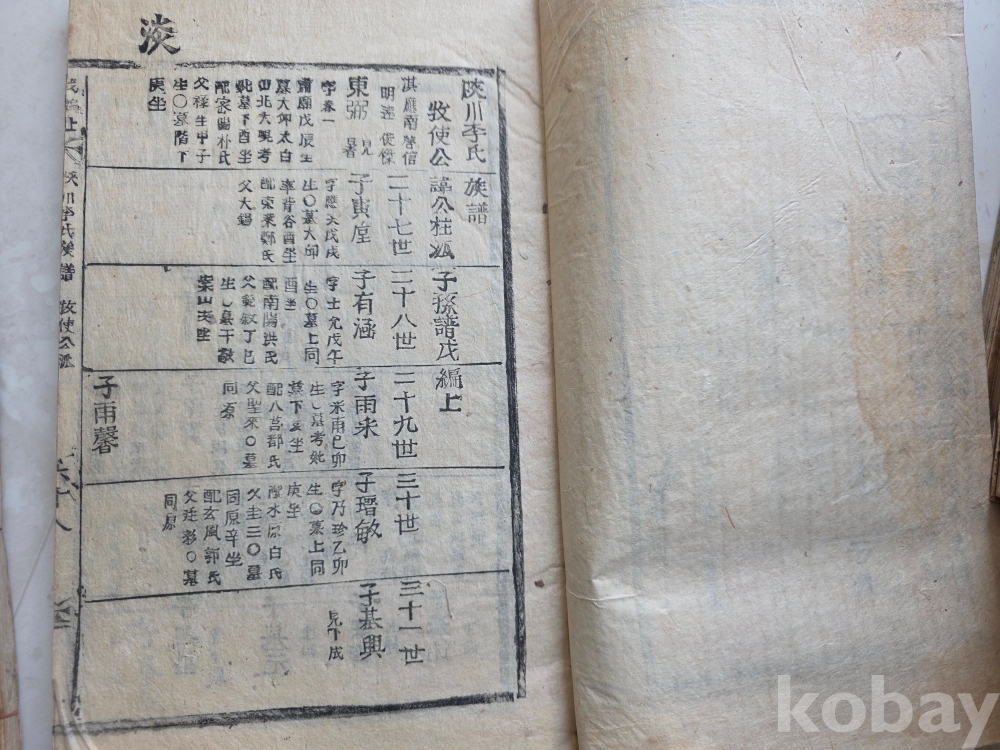 淡
陜川李氏族譜
牧使公諱公柱派子孫譜戊編上
二十七世
二十八世
二十九世
三十世
三十一世
淇應南啓信
明逵
東弼
字奉一
肅廟戊辰生
墓大卯太白
山北大興考
妣墓下酉坐
配密陽朴氏
父釋生甲子
生〇墓階下
庚坐
子寅屋
字應天戊戌
生〇墓大卯
率背谷酉坐
配東萊鄭氏
父大錫
子有涵
字士允戊午
生〇墓上同
酉坐
配南陽洪氏
父範敏丁巳
子雨釆
字釆甫己卯
生〇墓考妣
墓下亥坐
配八莒都氏
父聖來〇墓
同原
子雨馨
子瑨敏
字乃珍乙卯
生〇墓上同
庚坐
配水原白氏
父圭三〇墓
同原辛坐
配玄風郭氏
父廷彩〇墓
同原
子基興
見下成
陜川李氏族譜
牧使公派
kobay